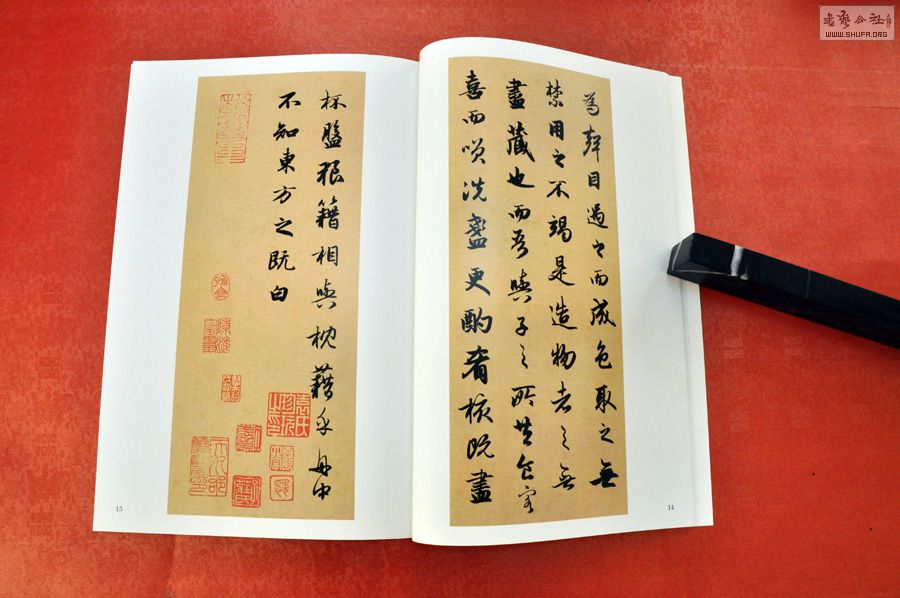 為聲目遇之而成色取之無
禁用之不竭是造物者之無
盡藏也而吾與子之所共食客
喜而笑洗盞更酌肴核既盡
14
杯盤狼籍相與枕藉乎舟中
不知東方之既白
15
書藝公社
WWW.SHUFA.ORG